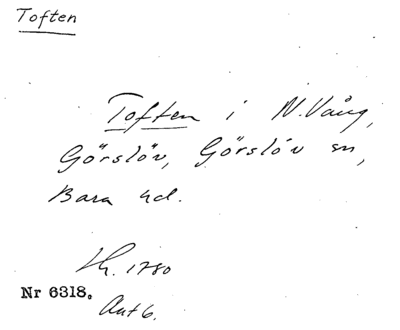 Toften
Toften i N. Vång,
Görslöv, Görslöv sn,
Bara hd.
1780
Nr 6318.
Akt 6.